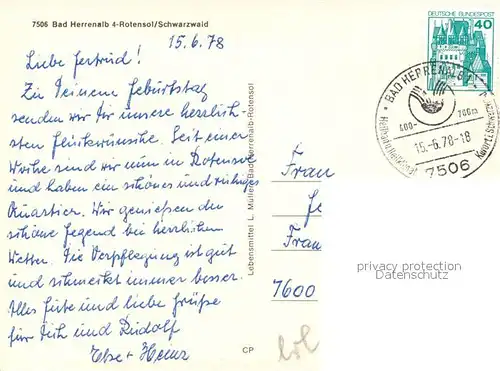 7506 Bad Herrenalb 4-Rotensol/Schwarzwald
15.6.78
Liebe Gertrud!
Zu Deinem Geburtstag
senden wir Dir unsere herzlich-
sten Glückwünsche. Seit einer
Woche sind wir nun in Rotensol
und haben ein schönes und ruhiges
Quartier. Wir genießen die
schöne Gegend bei herrlichem
Wetter. Die Verpflegung ist gut
und schmeckt immer besser.
Alles Gute und liebe Grüße
für Dich und Rudolf
Else + Heinz
CP
Lebensmittel L. Müller, Bad Herrenalb-Rotensol
DEUTSCHE BUNDESPOST
40
BAD HERRENALB
400- 700m
15.-6.78-18
7506
Frau
Frau
7600
privacy protection
Datenschutz